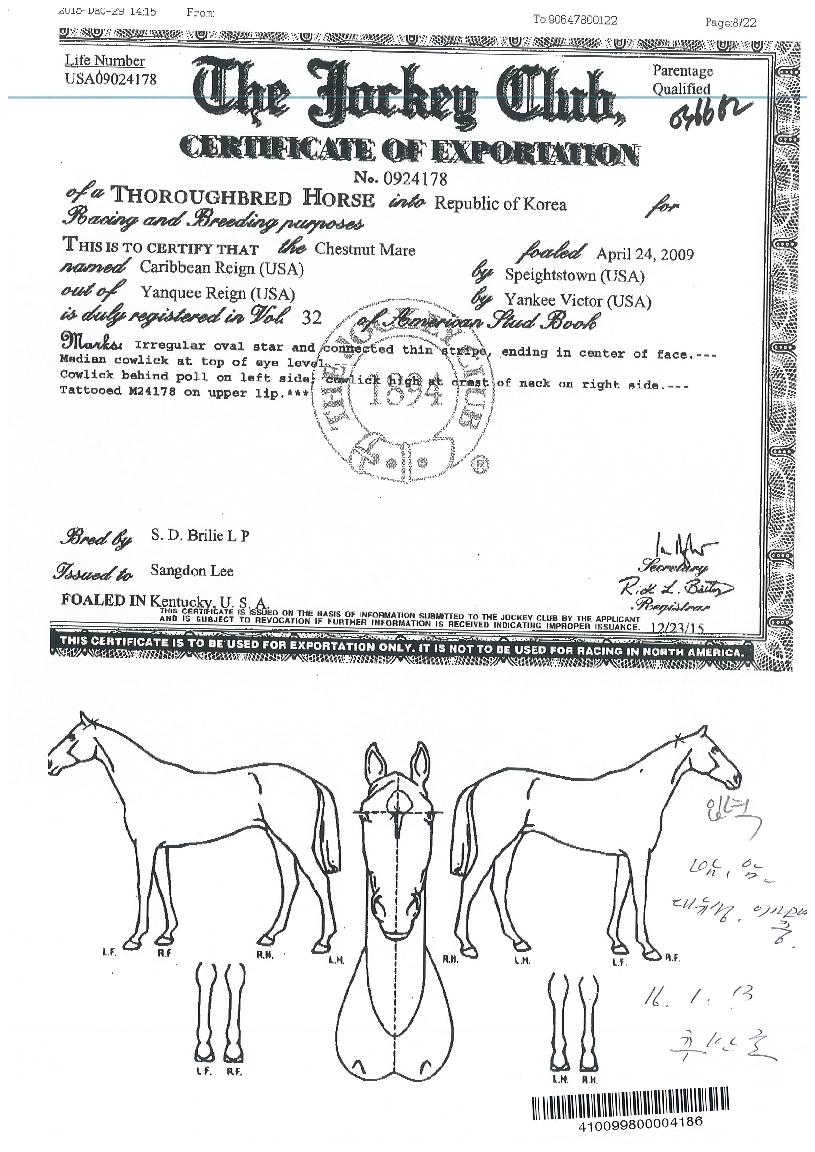 2015-DEC-29 14:15 From: To:90647800122 Page:8/22
Life Number
USA09024178
The Jockey Club
Parentage
Qualified
CERTIFICATE OF EXPORTATION
No. 0924178
of a THOROUGHBRED HORSE into Republic of Korea for
Racing and Breeding purposes
THIS IS TO CERTIFY THAT the Chestnut Mare foaled April 24, 2009
named Caribbean Reign (USA) by Speightstown (USA)
out of Yanquee Reign (USA) by Yankee Victor (USA)
is duly registered in Vol. 32 of American Stud Book
Marks: Irregular oval star and connected thin stripe, ending in center of face.---
Median cowlick at top of eye level.
Cowlick behind poll on left side; cowlick high at crest of neck on right side.---
Tattooed M24178 on upper lip.***
THE JOCKEY CLUB
1894
®
Bred by S. D. Brilie L P
Issued to Sangdon Lee
Secretary
Registrar
FOALED IN Kentucky, U. S. A.
THIS CERTIFICATE IS ISSUED ON THE BASIS OF INFORMATION SUBMITTED TO THE JOCKEY CLUB BY THE APPLICANT
AND IS SUBJECT TO REVOCATION IF FURTHER INFORMATION IS RECEIVED INDICATING IMPROPER ISSUANCE. 12/23/15
THIS CERTIFICATE IS TO BE USED FOR EXPORTATION ONLY. IT IS NOT TO BE USED FOR RACING IN NORTH AMERICA.
L.F. R.F R.H. L.H. R.H. L.H. L.F. R.F.
16. 1. 13
L.F. R.F. L.H. R.H.
410099800004186